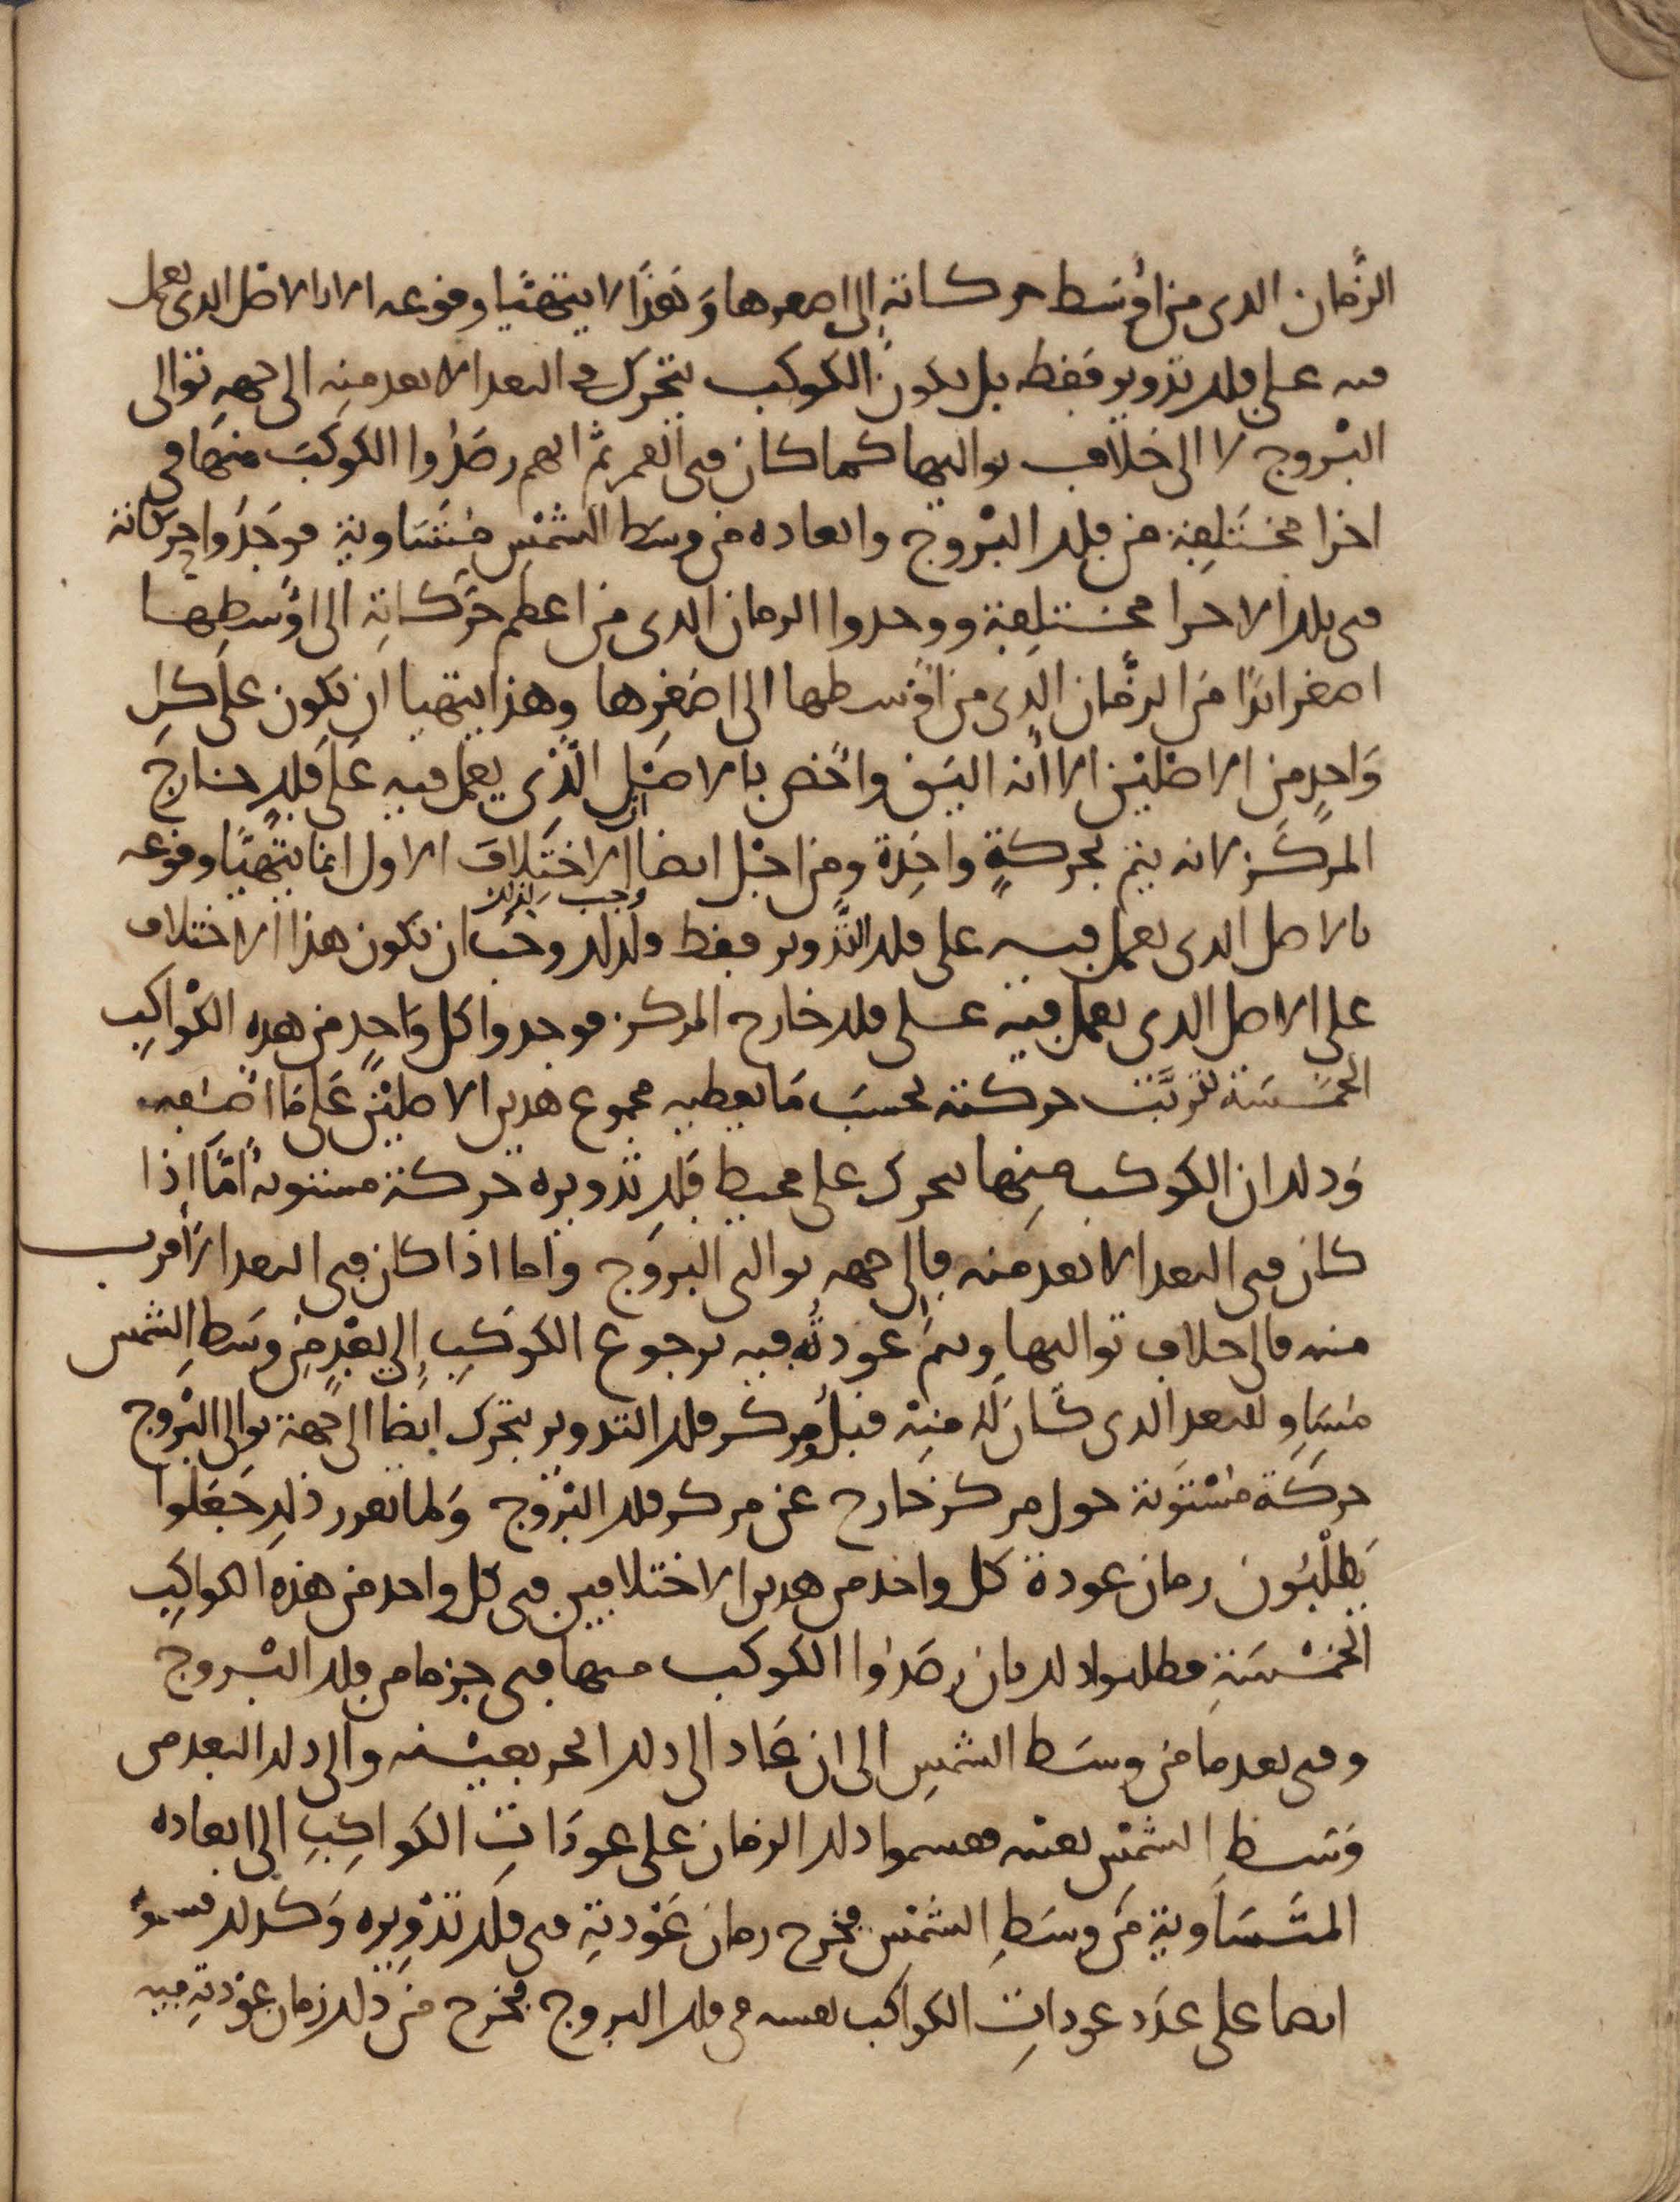 الزمان الدى من اوسط حركاته الى اصغرها وَهَذا لا يتهيا وقوعه الا بالاصل الدى يعمل
فيه على فلك تدوير فقط بل يكون الكوكب يتحرك في البعد الابعد منه الى جهة توالى
البروج لا الى خلاف تواليها كما كان فى القمر ثم انهم رصَدُوا الكوكبَ منها فى
اجزا مختلفة من فلك البروج وابعاده من وسط الشمس متساوية فوجَدُوا حركاته
فى تلك الاجزا مختلفة ووجدوا الزمان الدى من اعظم حركاته الى اوسطها
اصغر ابدًا من الزمان الدى من اوسطها الى اصغرها وهذا يتهيا ان يكون على كل
وَاحدٍ من الاصلين الا انه اليق واخص بالاصل الذى يعمل فيه على فلك خارج
المركز لانه يتم بحركةٍ واحدة ومن اجل ايضا ان الاختلاف الاول انما يتهيا وقوعه
بالاصل الدى يعمل فيه على فلك التدوير فقط ولدلك وجب وجب لذلك ان يكون هذا الاختلاف
على الاصل الدى يعمل فيه على فلك خارج المركز فوجدوا كل وَاحدٍ من هده الكواكب
الخمسة تترتب حركته بحسب مَا يعطيه مجموع هدين الاصلين على مَا اصفه
وَدلك ان الكوكب منها يتحرك على محيط فلك تدويره حركة مستوية امّا اذا
كان فى البعد الابعد منه فالى جهة توالى البروج واما اذا كان فى البعد الاقرب
منه فالى خلاف تواليها ويتم عودتُه فيه برجوع الكوكبِ إلى بعْدٍ من وسَطِ الشمس
مسَاوٍ للبعد الدى كان له منه قبلُ ومركز فلك التدوير يتحرك ايضا الى جهة توالى البروج
حركَة مستوية حول مركز خارج عن مركز فلك البروج وَلما تقرر ذلك جَعَلوا
يَطلبون زمان عودة كل واحد من هدين الاختلافين فى كل واحد من هذه الكواكب
الخمسة فطلبوا دلك بان رصَدُوا الكوكب منها فى جزء ما من فلك البروج
وفى بعد ما من وسَط الشمس الى ان عَاد الى دلك الجزء بعينه والى دلك البعد من
وسط الشمس بعينه فقسموا دلك الزمان على عودَاتِ الكواكب الى ابعاده
المتساوية من وسَطِ الشمس فخرج زمان عَوْدته فى فلك تدويره وَكدلك قسموه
ايضا على عدَد عوداتِ الكواكب نفسه فى فلك البروج فخرج من دلك زمان عوْدته فيه